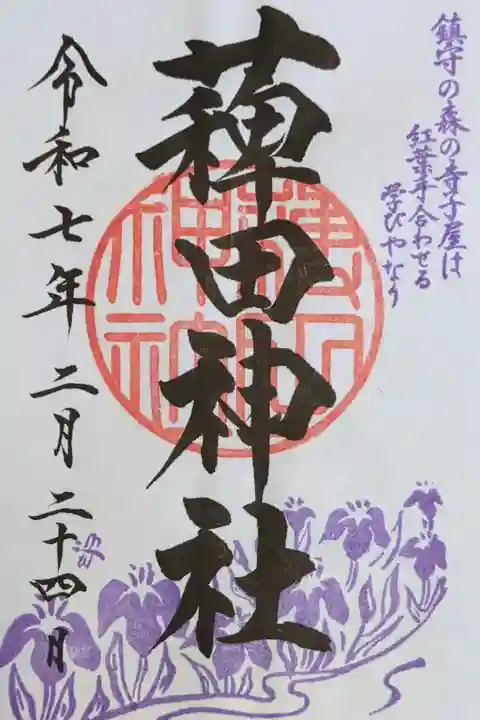 鎮守の森の寺子屋は
紅葉手合わせる
学びやなり
薭田神社
令和七年二月二十四日